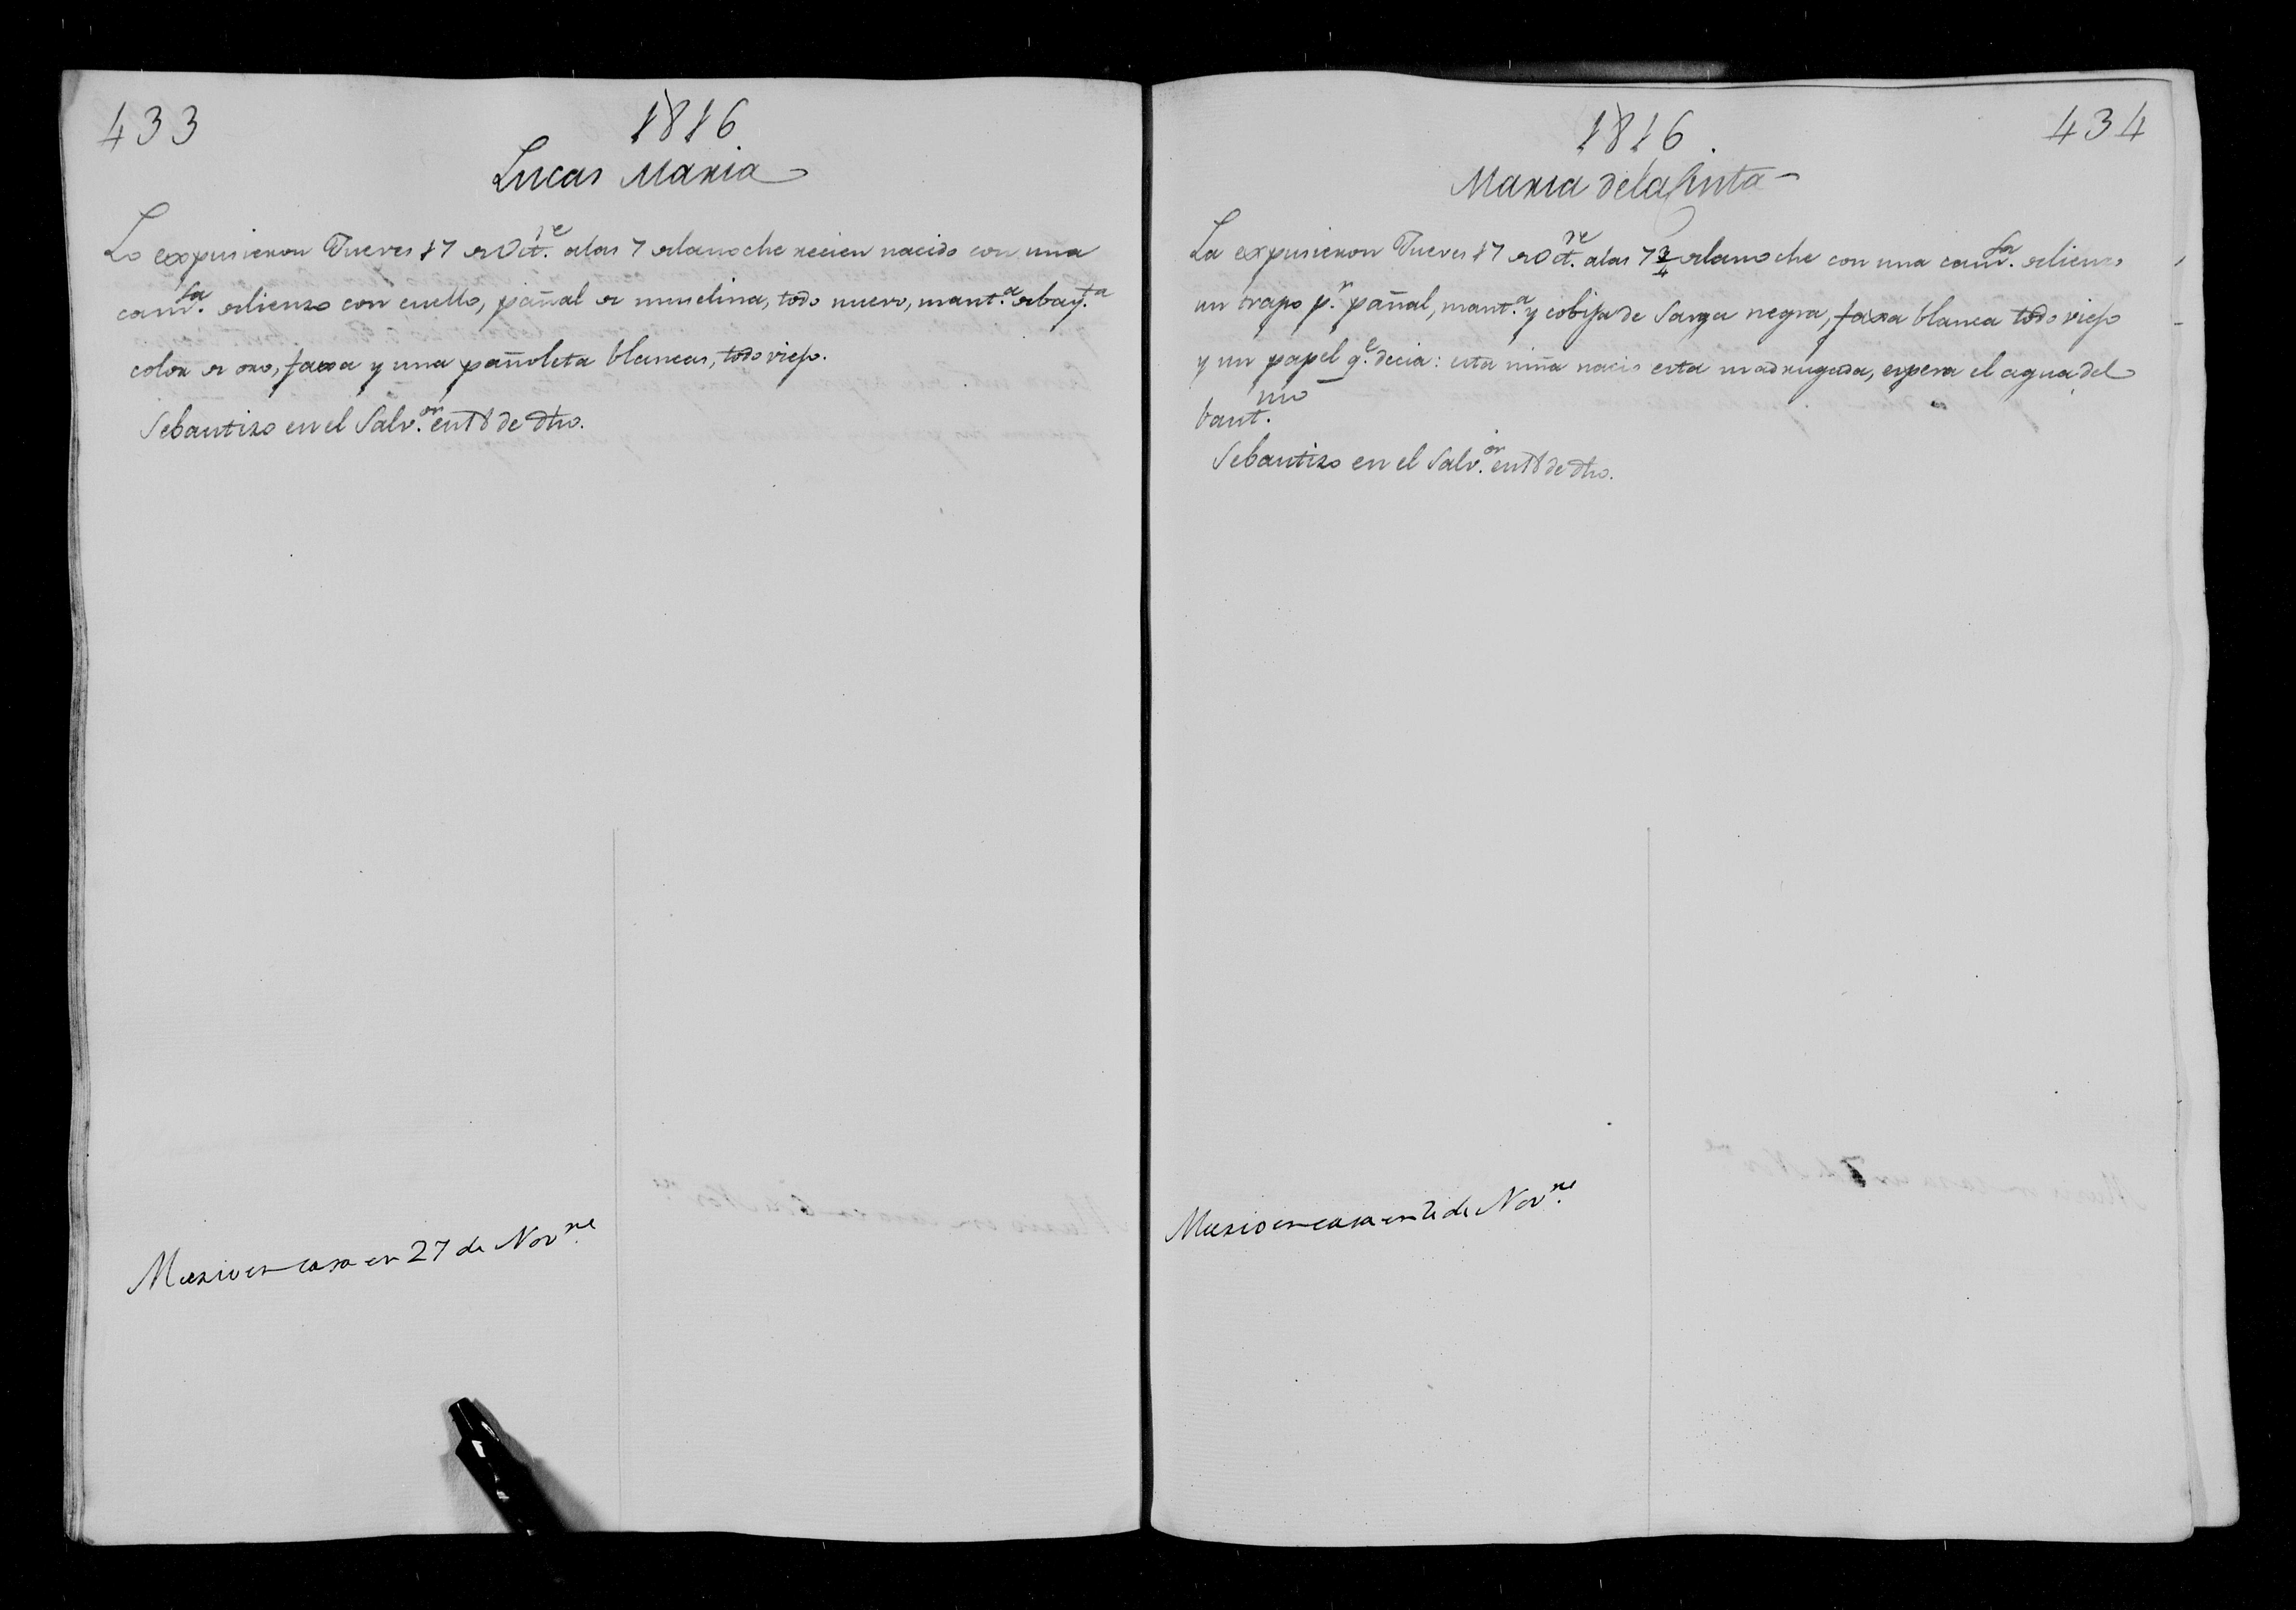 433
1816
Lucas Maria
Lo expusieron Jueves 17 de Oct.re a las 7 de la noche recien nacido con una
cam.sa de lienzo con cuello, pañal de muselina, todo nuevo, mant.a de bay.ta
color de oro, faxa y una pañoleta blancas, todo viejo.
Se bautizo en el Salv.or en 18 de dho.
Murio en casa en 27 de Nov.re
434
1816
Maria de la Cinta
La expusieron Jueves 17 de Oct.re a las 7 3/4 de la noche con una cam.sa de lienzo
un trapo p.r pañal, mant.a y cobija de Sarga negra, faxa blanca todo viejo
y un papel q.e decia: esta niña nacio esta madrugada, espera el agua del
baut.mo
Se bautizo en el Salv.or en 18 de dho.
Murio en casa en de Nov.re